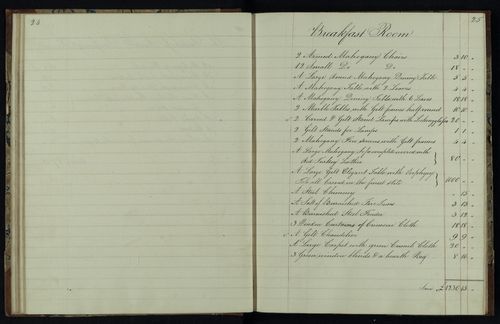 24
25
Breakfast Room
2 Armed Mahogany Chairs 3 10 -
12 Small Do Do 18 - -
A Large Mahogany Dining Table
A Mahogany Table with 2 Leaves 4 4 -
A Mahogany Dining Table with 6 Leaves 18 18 -
2 Marble Tables with Gilt frames half round 10 10 -
2 Carved & Gilt Stands Lamps with 20 - -
2 Gilt Stands for Lamps 1 1 -
2 Mahogany Fire screens with Gilt frames 4 4 -
A Large Mahogany Sofa complete covered with
Red Turkey Leather 80 - -
A Large Gilt Elegant Table with
all Carved in the finest state 1000 - -
A Steel Chimney - 15 -
A Set of Burnished Fire Irons 3 13 -
A Burnished Steel Fender 3 13 -
3 Window Curtains of Crimson Cloth 18 18 -
A Gilt Chandelier 9 9 -
A Large Carpet with green Crumb Cloth 20 - -
3 Green window blinds & a hearth Rug 8 10 -